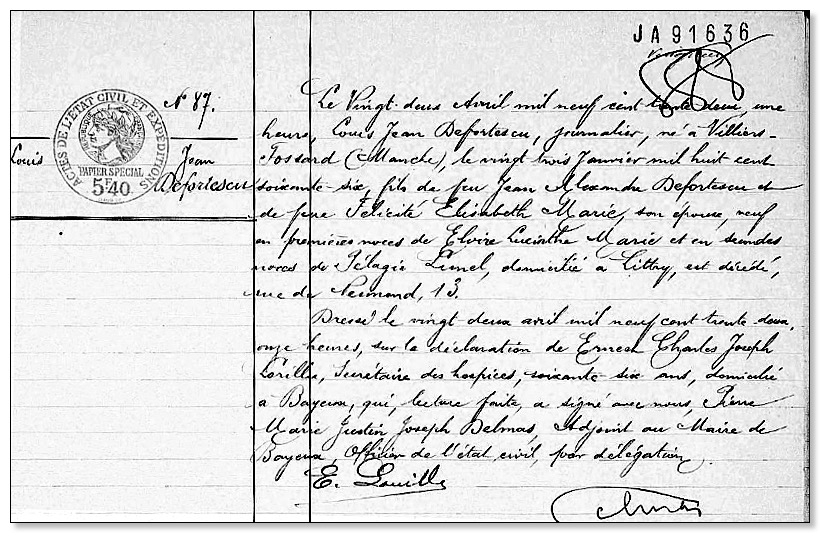 JA 91636
N° 87.
ACTES DE L'ETAT CIVIL ET EXPEDITIONS
PAPIER SPECIAL
5F40
Louis Jean
Defortescu
Le vingt-deux Avril mil neuf cent trente deux, une
heure, Louis Jean Defortescu, journalier, né à Villiers-
Fossard (Manche), le vingt trois Janvier mil huit cent
soixante-six, fils de feu Jean Alexandre Defortescu et
de feue Félicité Elisabeth Marie, son épouse, veuf
en premières noces de Elvire Marie et en secondes
noces de Pélagie Limel, domicilié à Littry, est décédé,
rue de Nesmond, 13.
Dressé le vingt deux avril mil neuf cent trente-deux,
onze heures, sur la déclaration de Ernest Charles Joseph
Lorille, Secrétaire des hospices, soixante-six ans, domicilié
à Bayeux, qui, lecture faite, a signé avec nous, Pierre
Marie Justin Joseph Delmas, Adjoint au Maire de
Bayeux, Officier de l'état civil, par délégation.